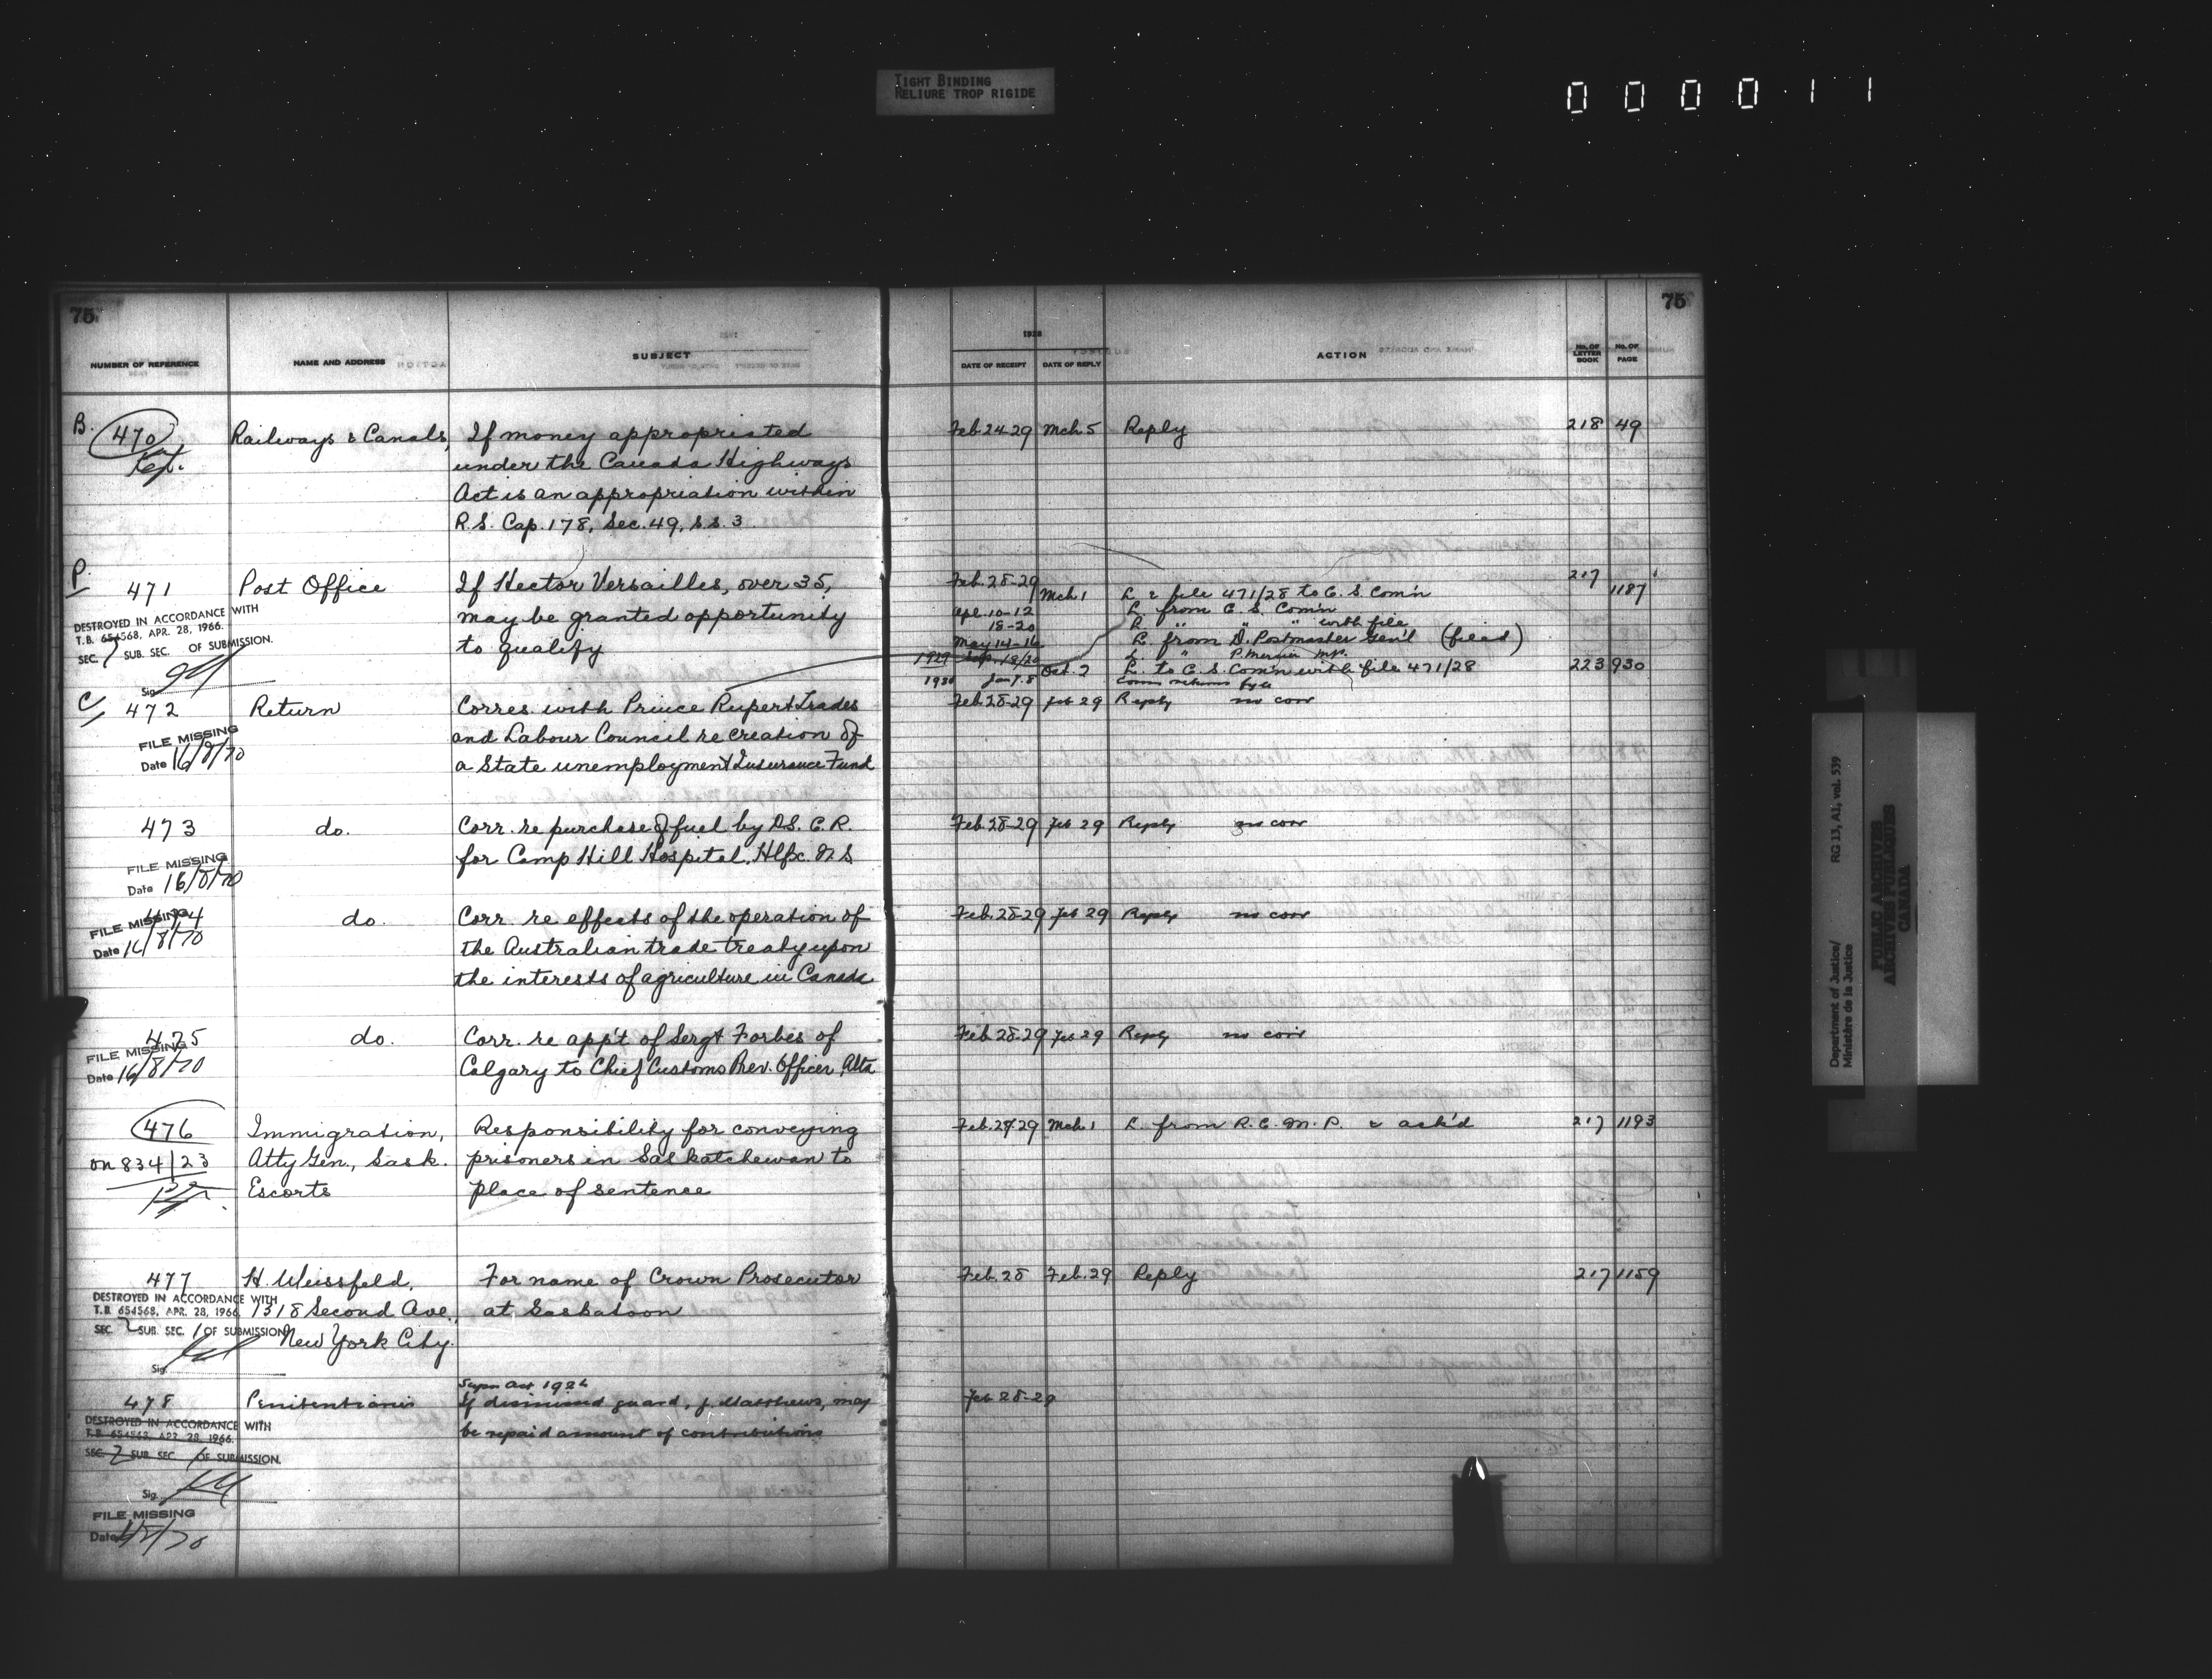 TIGHT BINDING
RELIURE TROP RIGIDE
000011
75
NUMBER OF REFERENCE NAME AND ADDRESS SUBJECT
B. 470 Railways & Canals, If money appropriated
under the Canada Highways
Act is an appropriation within
R.S. Cap. 178, Sec. 49, s.s. 3
P. 471 Post Office If Hector Versailles, over 35,
DESTROYED IN ACCORDANCE WITH may be granted opportunity
T.B. 654568, APR. 28, 1966. to qualify
SEC. SUB. SEC. OF SUBMISSION.
Sig.
C/ 472 Return Corres with Prince Rupert Trades
FILE MISSING and Labour Council re creation of
Date 16/8/70 a State unemployment Insurance Fund
473 do. Corr. re purchase of fuel by D.S.C.R.
FILE MISSING for Camp Hill Hospital, Hlfx. N.S
Date 16/8/70
474 do. Corr. re effects of the operation of
FILE MISSING the Australian trade treaty upon
Date 16/8/70 the interests of agriculture in Canada
475 do. Corr. re app't of Sergt Forbes of
FILE MISSING Calgary to Chief Customs Prev. Officer, Alta
Date 16/8/70
476 Immigration, Responsibility for conveying
on 834/23 Atty Gen., Sask. prisoners in Saskatchewan to
Escorts place of sentence
477 H. Weissfeld, For name of Crown Prosecutor
DESTROYED IN ACCORDANCE WITH 1318 Second Ave., at Saskatoon
T.B. 654568, APR. 28, 1966 New York City.
SEC. 2 SUB. SEC. 1 OF SUBMISSION
Sig.
Supn Act 1924
478 Penitentiaries If dismissed guard, J. Matthews, may
DESTROYED IN ACCORDANCE WITH be repaid amount of contributions
T.B. 654568, APR. 28, 1966.
SEC. 2 SUB. SEC. 1 OF SUBMISSION.
Sig.
FILE MISSING
Date
75
1928
DATE OF RECEIPT DATE OF REPLY ACTION No. OF LETTER BOOK No. OF PAGE
Feb. 24-29 Mch. 5 Reply 218 49
Feb. 28-29 Mch 1 L & file 471/28 to C. S. Com'n 217 1187
Apl. 10-12 L. from C. S. Com'n
18-20 L. " " " with file
May 14-16 L. from D. Postmaster Gen'l (filed)
1929 Sep. 18/20 L " P. Mercier M.P.
Oct. 2 L. to C. S. Com'n with file 471/28 223 930
1930 Jan 7.8 Comn returns file
Feb. 28-29 Feb 29 Reply no corr
Feb. 28-29 Feb 29 Reply no corr
Feb. 28-29 Feb 29 Reply no corr
Feb. 28-29 Feb 29 Reply no corr
Feb. 29-29 Mch. 1 L. from R. C. M. P. & ack'd 217 1193
Feb. 28 Feb. 29 Reply 217 1159
Feb 28-29
Department of Justice/ RG 13, A1, vol. 539
Ministère de la Justice
PUBLIC ARCHIVES
ARCHIVES PUBLIQUES
CANADA